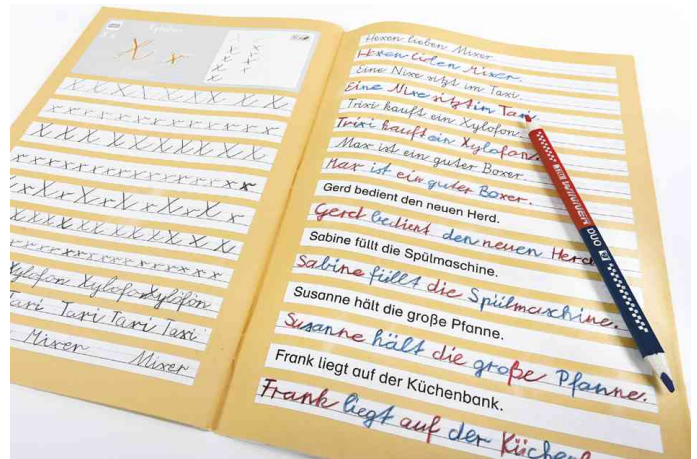 Xylofon
X x
X X X X X X X X X X
x x x x x x x x x x x x x
X X X X X X X X X X
x x x x x x x x x x x x x x
X x X x X x X x X x
X X X X X X X X X X
x x x x x x x x x x x x x
Xylofon Xylofon Xylofon
Taxi Taxi Taxi Taxi
Mixer Mixer
Hexen lieben Mixer.
Hexen lieben Mixer.
Eine Nixe sitzt im Taxi.
Eine Nixe sitzt im Taxi.
Trixi kauft ein Xylofon.
Trixi kauft ein Xylofon.
Max ist ein guter Boxer.
Max ist ein guter Boxer.
Gerd bedient den neuen Herd.
Gerd bedient den neuen Herd
Sabine füllt die Spülmaschine.
Sabine füllt die Spülmaschine.
Susanne hält die große Pfanne.
Susanne hält die große Pfanne.
Frank liegt auf der Küchenbank.
Frank liegt auf der Küchen
DUO